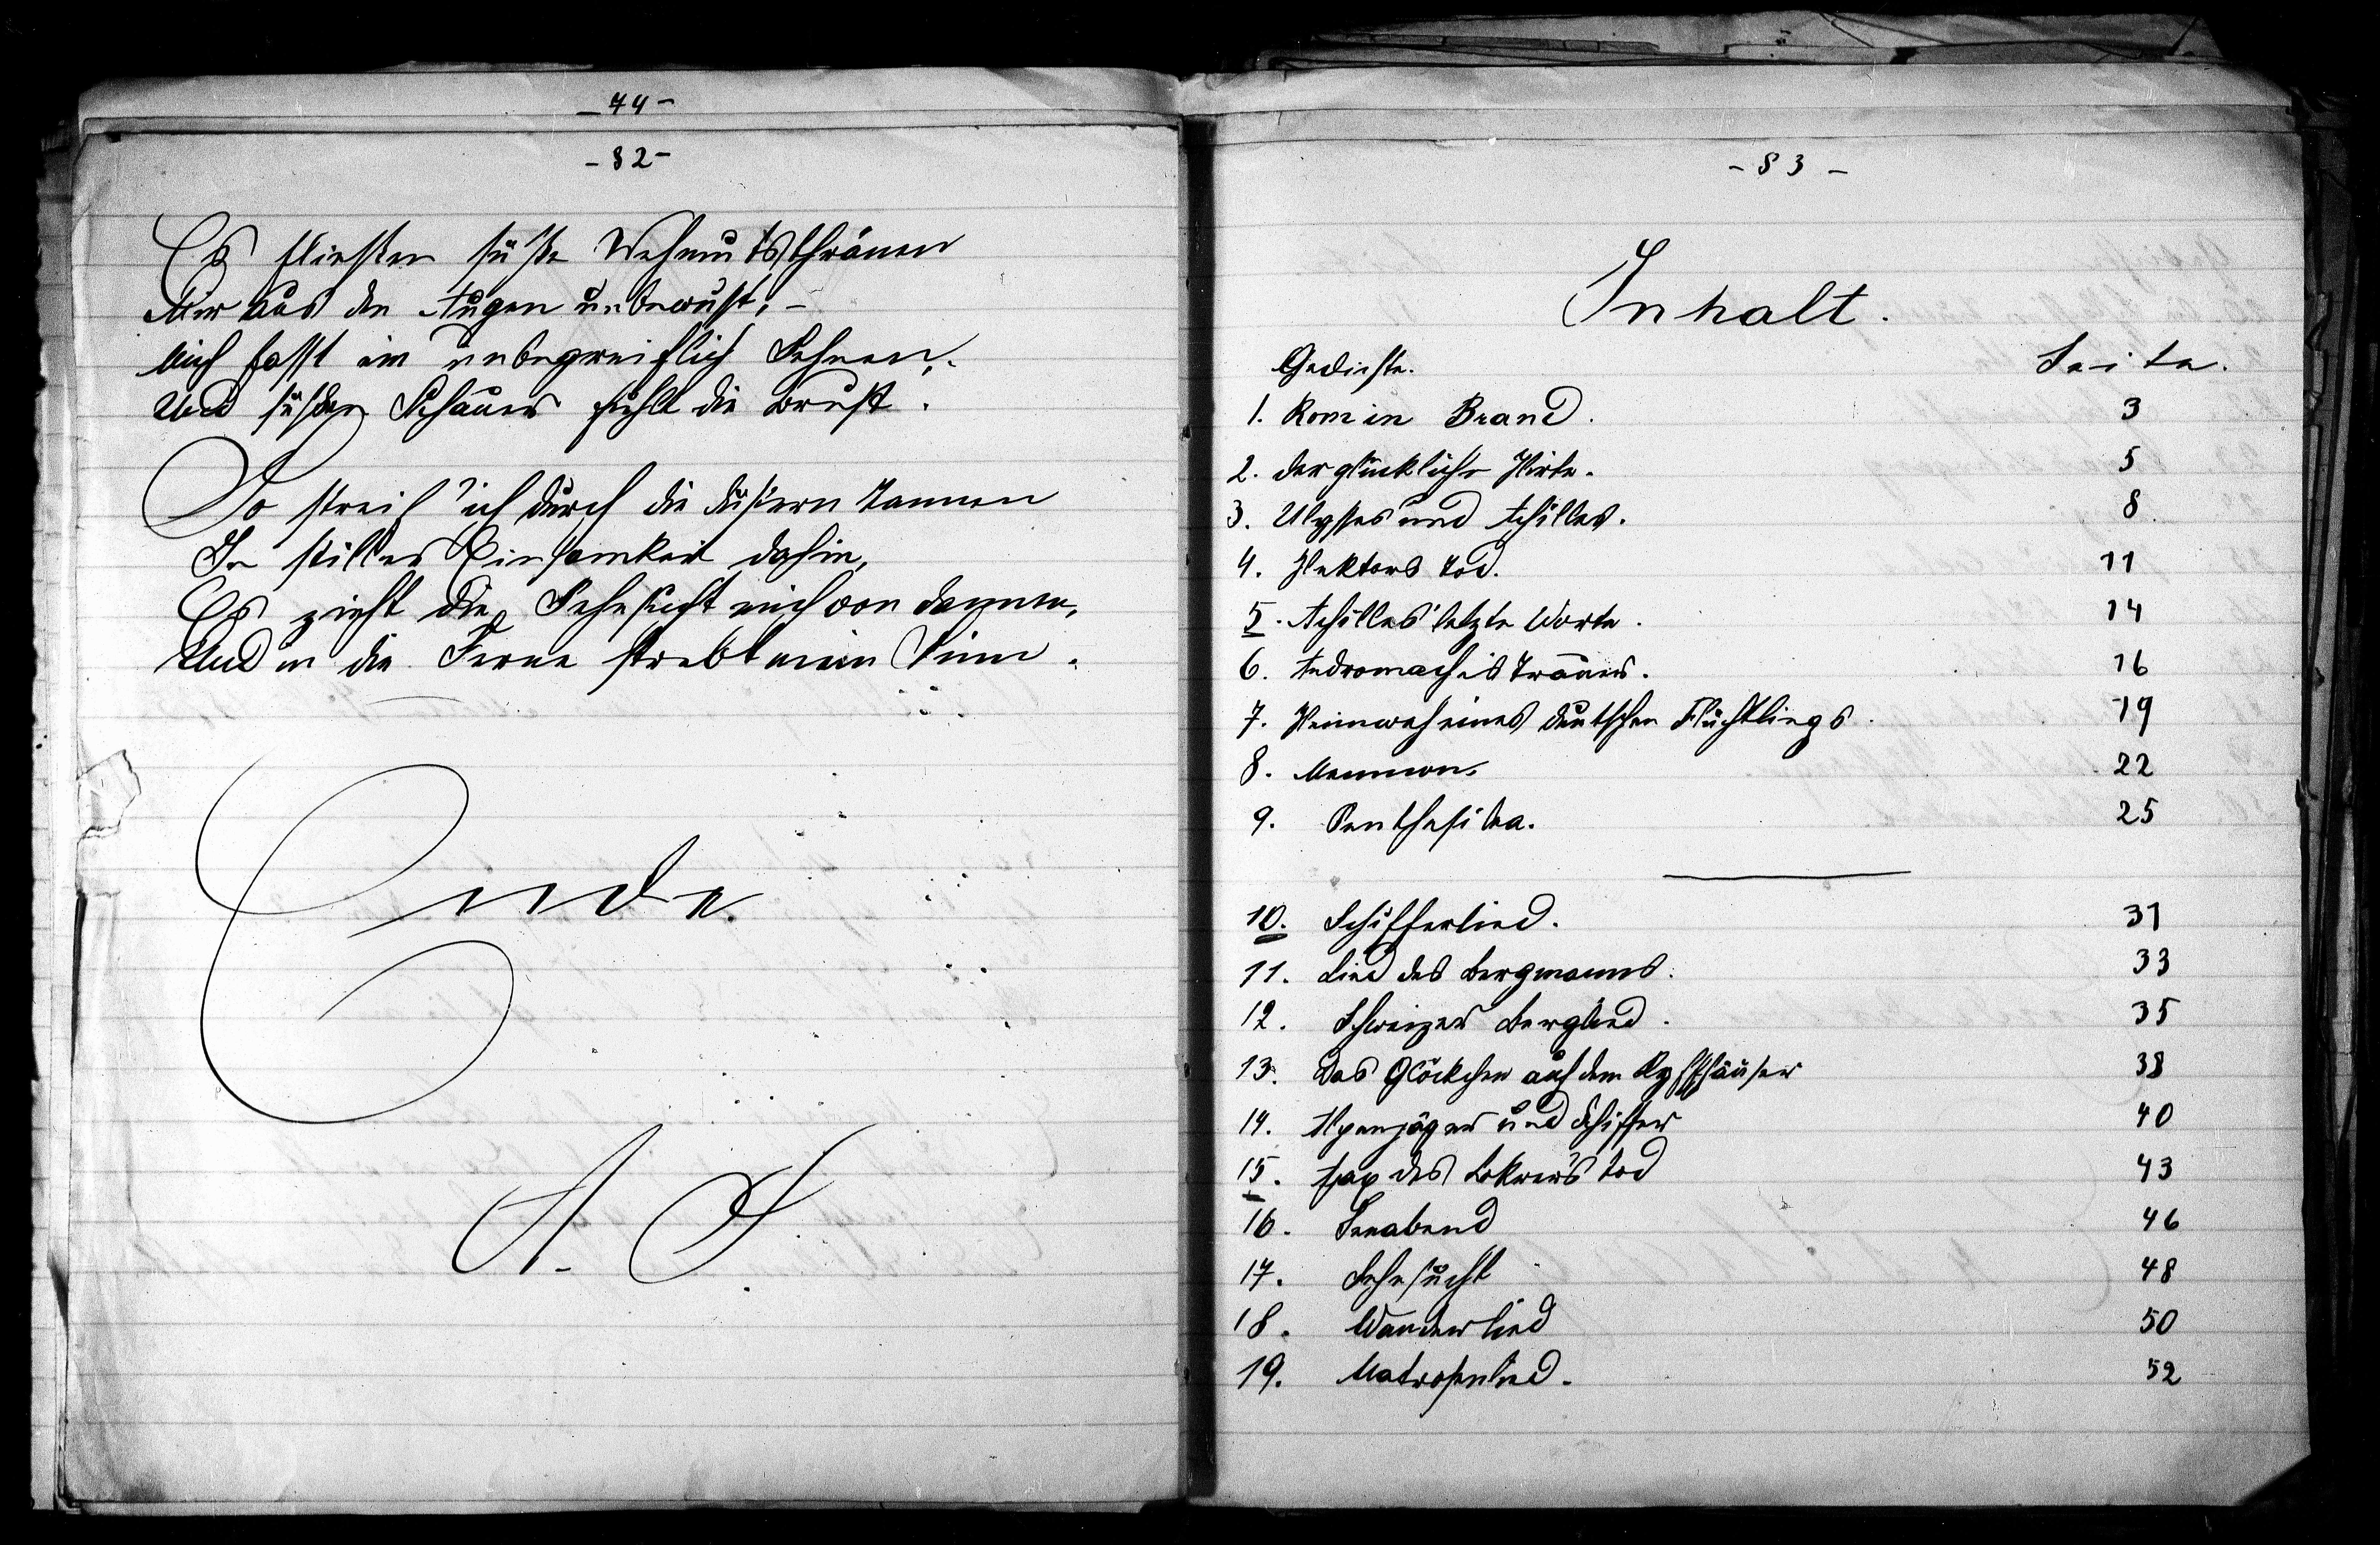 - 74 -
- 82 -
Es fliessen süsse Wehmutsthränen
Mir aus den Augen unbewusst, -
Mich fasst ein unbegreiflich Sehnen,
Und süssen Schauer fühlt die Brust.
So streif' ich durch die düstern Tannen
In stiller Einsamkeit dahin,
Es zieht die Sehnsucht mich von dannen,
Und in die Ferne strebt mein Sinn.
Ende.
A. S.
- 83 -
Inhalt.
Gedichte. Seite.
1. Rom in Brand. 3
2. Der glückliche Hirte. 5
3. Ulysses und Achilles. 8
4. Hektors Tod. 11
5. Achilles' letzte Worte. 14
6. Andromaches Trauer. 16
7. Heimweh eines deutschen Flüchtlings. 19
8. Memnon. 22
9. Penthesilea. 25
10. Schifferlied. 31
11. Lied des Bergmanns. 33
12. Schweizer Berglied. 35
13. Das Glöckchen auf dem Kyffhäuser 38
14. Alpenjäger und Schiffer 40
15. Ajax des Lokrers Tod 43
16. Seeabend 46
17. Sehnsucht 48
18. Wanderlied 50
19. Matrosenlied. 52